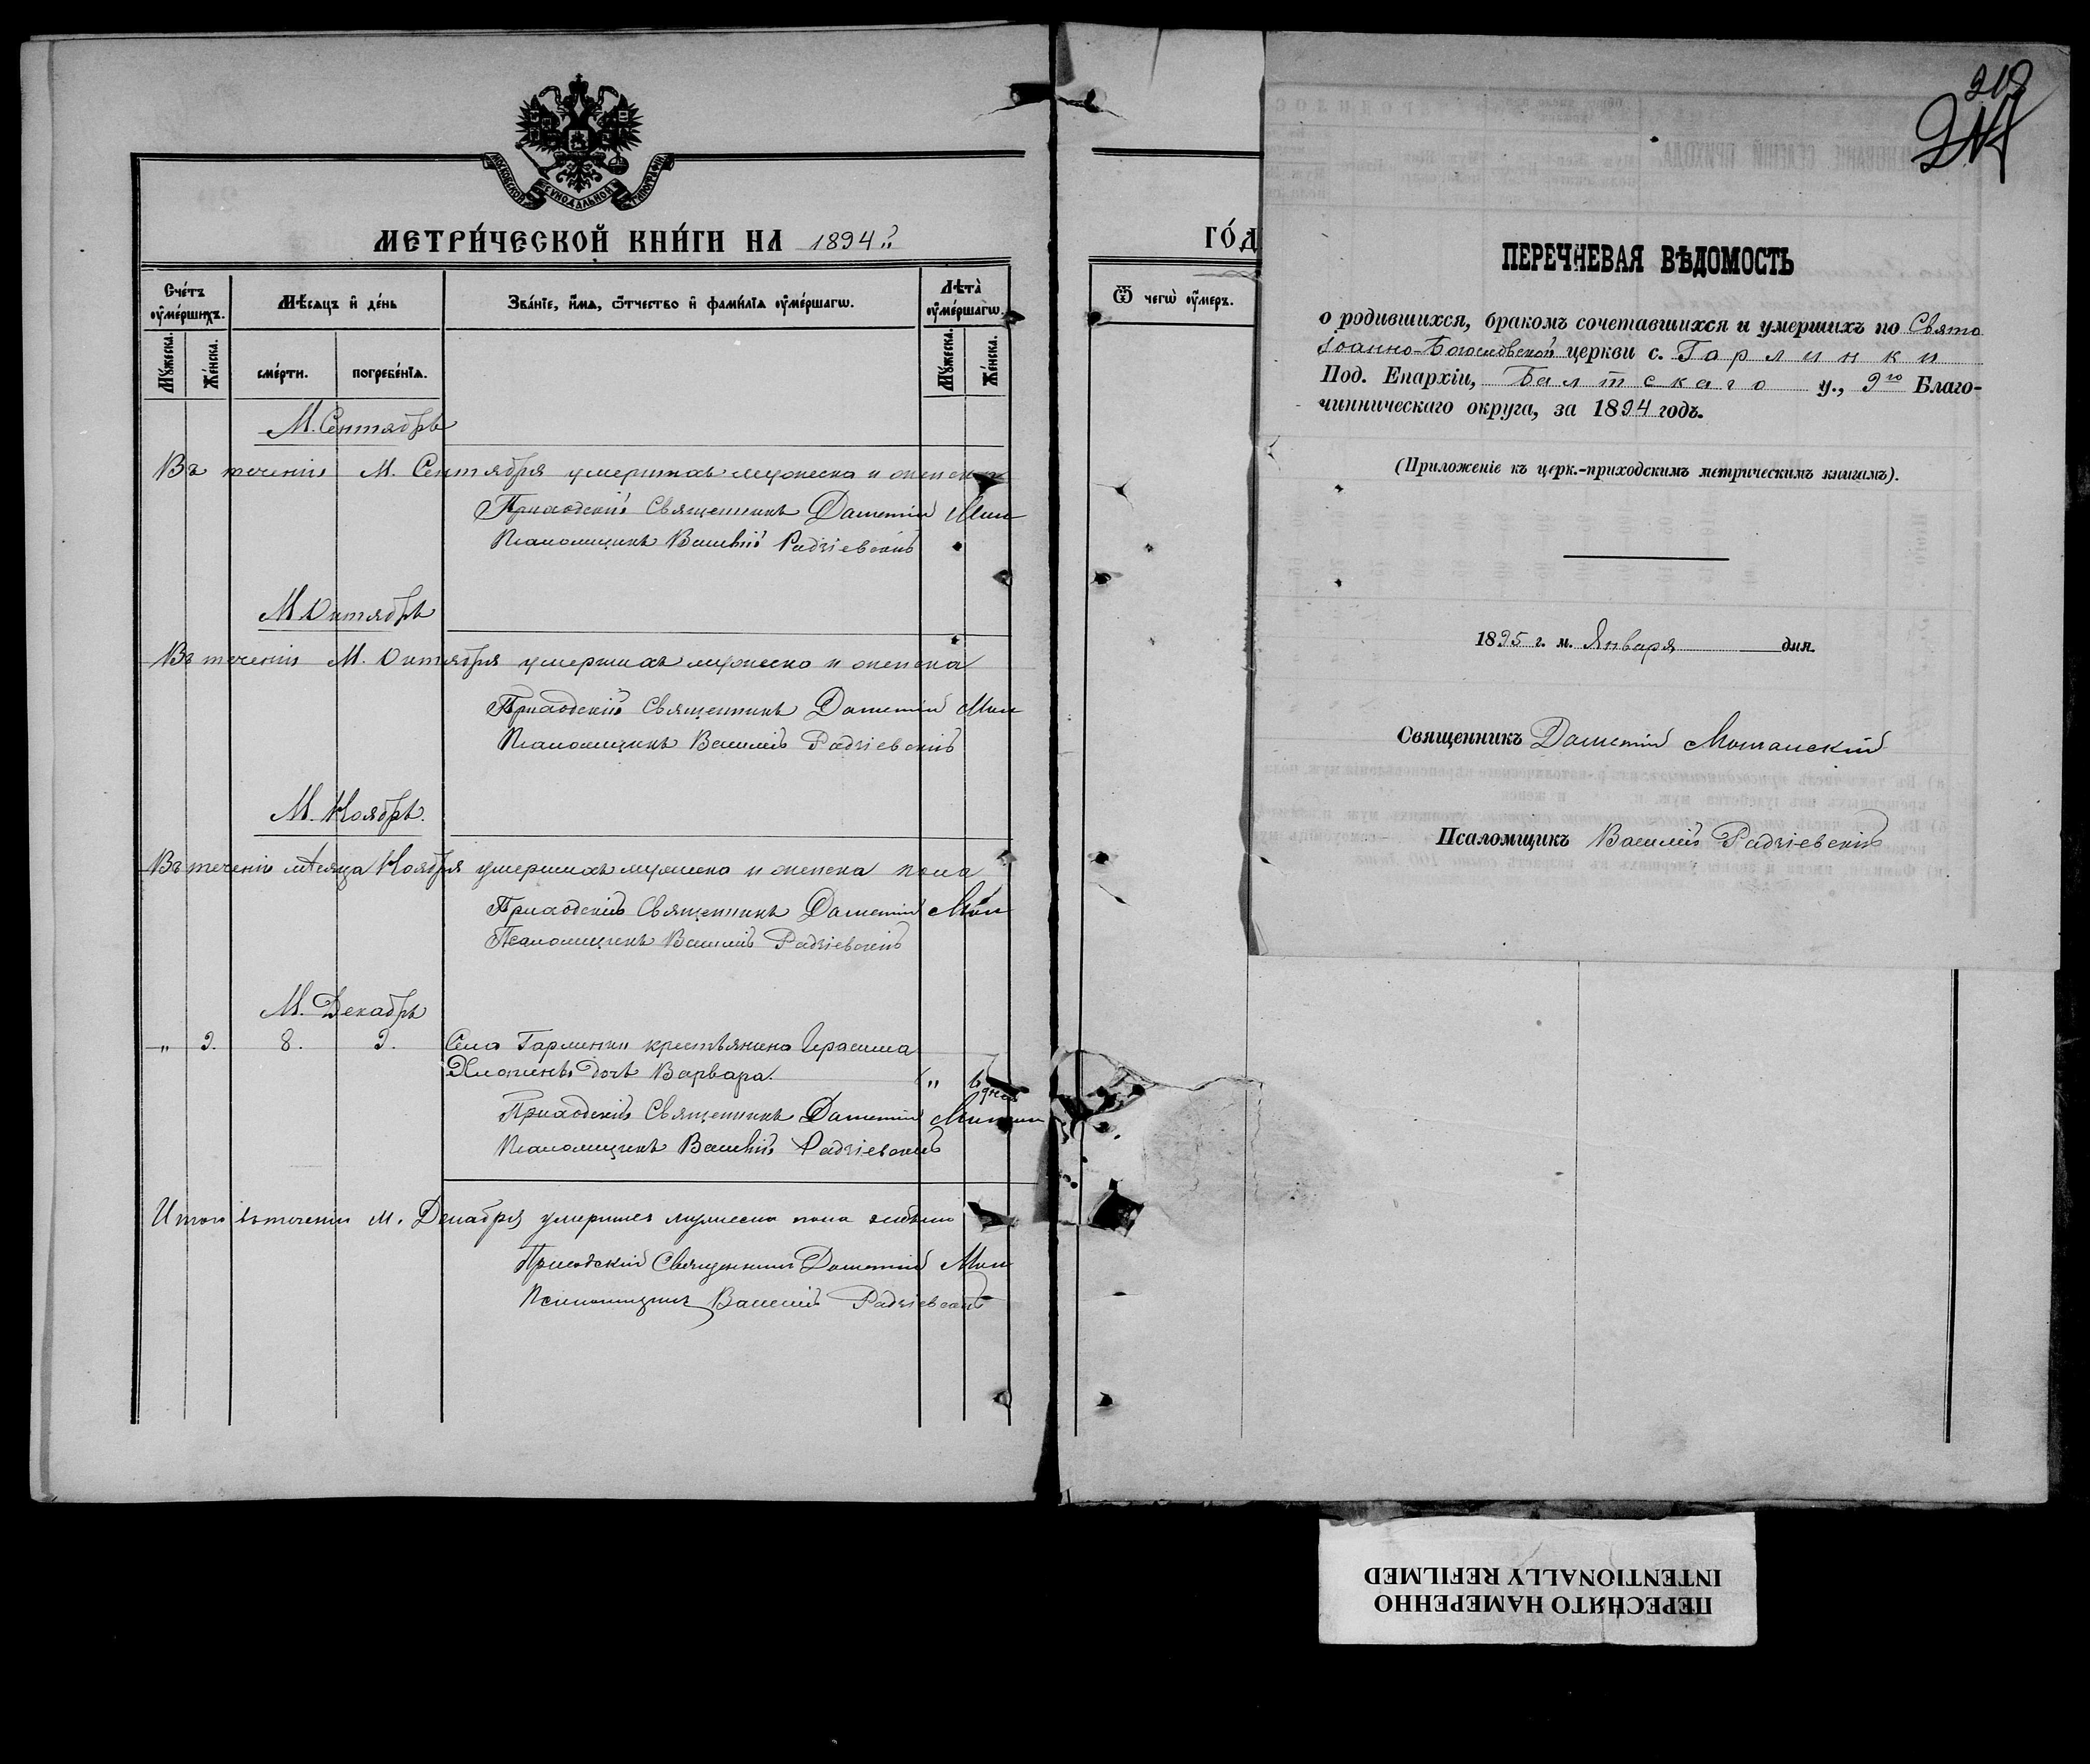 МОСКОВСКОЙ СѴНОДАЛЬНОЙ ТИПОГРАФІИ
МЕТРИ́ЧЕСКОЙ КНИ́ГИ НА 1894 г.
Сче́тъ ᲂу҆ме́ршихъ.
Мѣ́сяцъ и҆ де́нь
Зва́нїе, и҆́мѧ, ѻ҆́тчество и҆ фами́лїѧ ᲂу҆ме́ршагѡ.
Лѣта̀ ᲂу҆ме́ршагѡ.
Мꙋ́жеска.
Же́нска.
сме́рти.
погребе́нїѧ.
Мꙋ́жеска.
Же́нска.
М. Сентябрь
Въ теченіи М. Сентября умершихъ мужеска и женска
Приходскій Священникъ Дометій
Псаломщикъ Василій Радзіевскій
М. Октябрь
Въ теченіи М. Октября умершихъ мужеска и женска
Приходскій Священникъ Дометій
Псаломщикъ Василій Радзіевскій
М. Ноябрь.
Въ теченіи мѣсяца Ноября умершихъ мужеска и женска пола
Приходскій Священникъ Дометій
Псаломщикъ Василій Радзіевскій
М. Декабрь
" 9. 8. 9. Села Гарлинки крестьянина Герасима
дочь Варвара. "
Приходскій Священникъ Дометій
Псаломщикъ Василій Радзіевскій
Итого въ теченіи М. Декабря умерших мужеска пола
Приходскій Священникъ Дометій
Псаломщикъ Василій Радзіевскій
ГО́Д
Ѿ чегѡ̀ ᲂу҆́меръ.
ПЕРЕЧНЕВАЯ ВѢДОМОСТЬ
о родившихся, бракомъ сочетавшихся и умершихъ по Свято
Іоанно-Богословской церкви с. Гарлинки
Под. Епархіи, Балтскаго у., 9го Благо-
чинническаго округа, за 1894 годъ.
(Приложеніе къ церк.-приходскимъ метрическимъ книгамъ).
1895 г. м. Января дня.
Священникъ Дометій
Псаломщикъ Василій Радзіевскій
ПЕРЕСНЯТО НАМЕРЕННО
INTENTIONALLY REFILMED